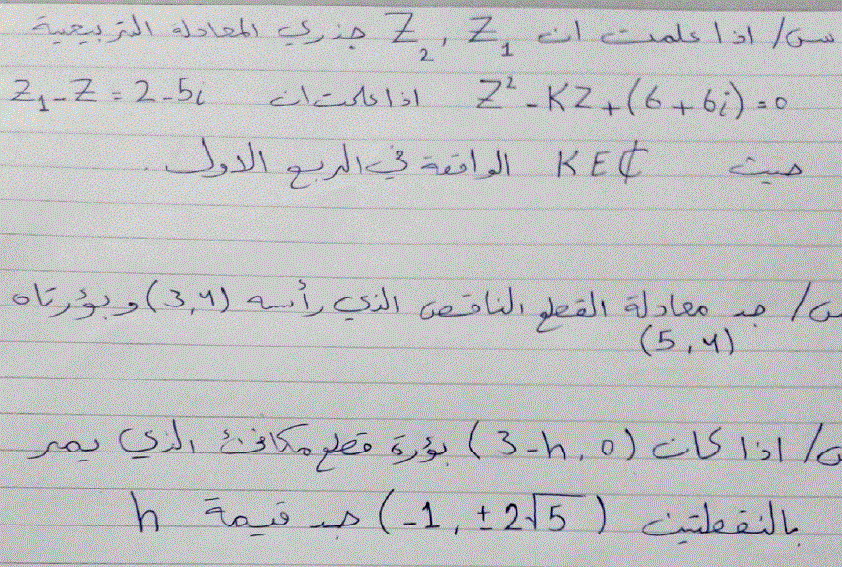 س/ اذا علمت ان Z₁ , Z₂ جذري المعادلة التربيعية
Z² - KZ + (6 + 6i) = 0 اذا علمت ان Z₁ - Z = 2 - 5i
حيث K∈ℂ الواقعة في الربع الاول.
س/ جد معادلة القطع الناقص الذي رأسه (3,4) وبؤرتاه
(5,4)
س/ اذا كانت (3-h, 0) بؤرة قطع مكافئ الذي يمر
بالنقطتين (-1, ±2√5) جد قيمة h